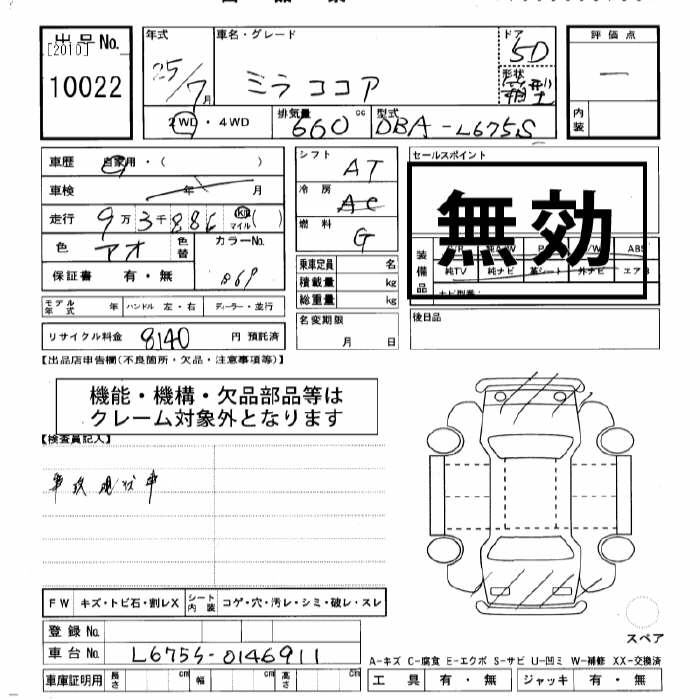 出品No.
[2010]
10022
年式
25/7月
車名・グレード
ミラ ココア
ドア
5D
形状
箱型
評価点
―
内装
2WD・4WD
排気量 660 cc
型式 DBA-L675S
車歴 自家用・( )
車検 年 月
走行 9万3千886 km マイル ( )
色 アオ 色替
カラーNo.
B69
保証書 有・無
モデル年式 年 ハンドル 左・右 ディーラー・並行
リサイクル料金 8140 円 預託済
シフト AT
冷房 AC
燃料 G
乗車定員 名
積載量 kg
総重量 kg
名変期限
月 日
セールスポイント
無効
装備品
ABS
純TV 純ナビ 革シート 外ナビ エアB
後日品
【出品店申告欄(不良箇所・欠品・注意事項等)】
機能・機構・欠品部品等は
クレーム対象外となります
【検査員記入】
事故現状車
FW キズ・トビ石・割レX シート内装 コゲ・穴・汚レ・シミ・破レ・スレ
登録No.
車台No. L675S-0146911
車庫証明用 長さ cm 幅 cm 高さ cm
スペア
A-キズ C-腐食 E-エクボ S-サビ U-凹ミ W-補修 XX-交換済
工具 有・無 ジャッキ 有・無